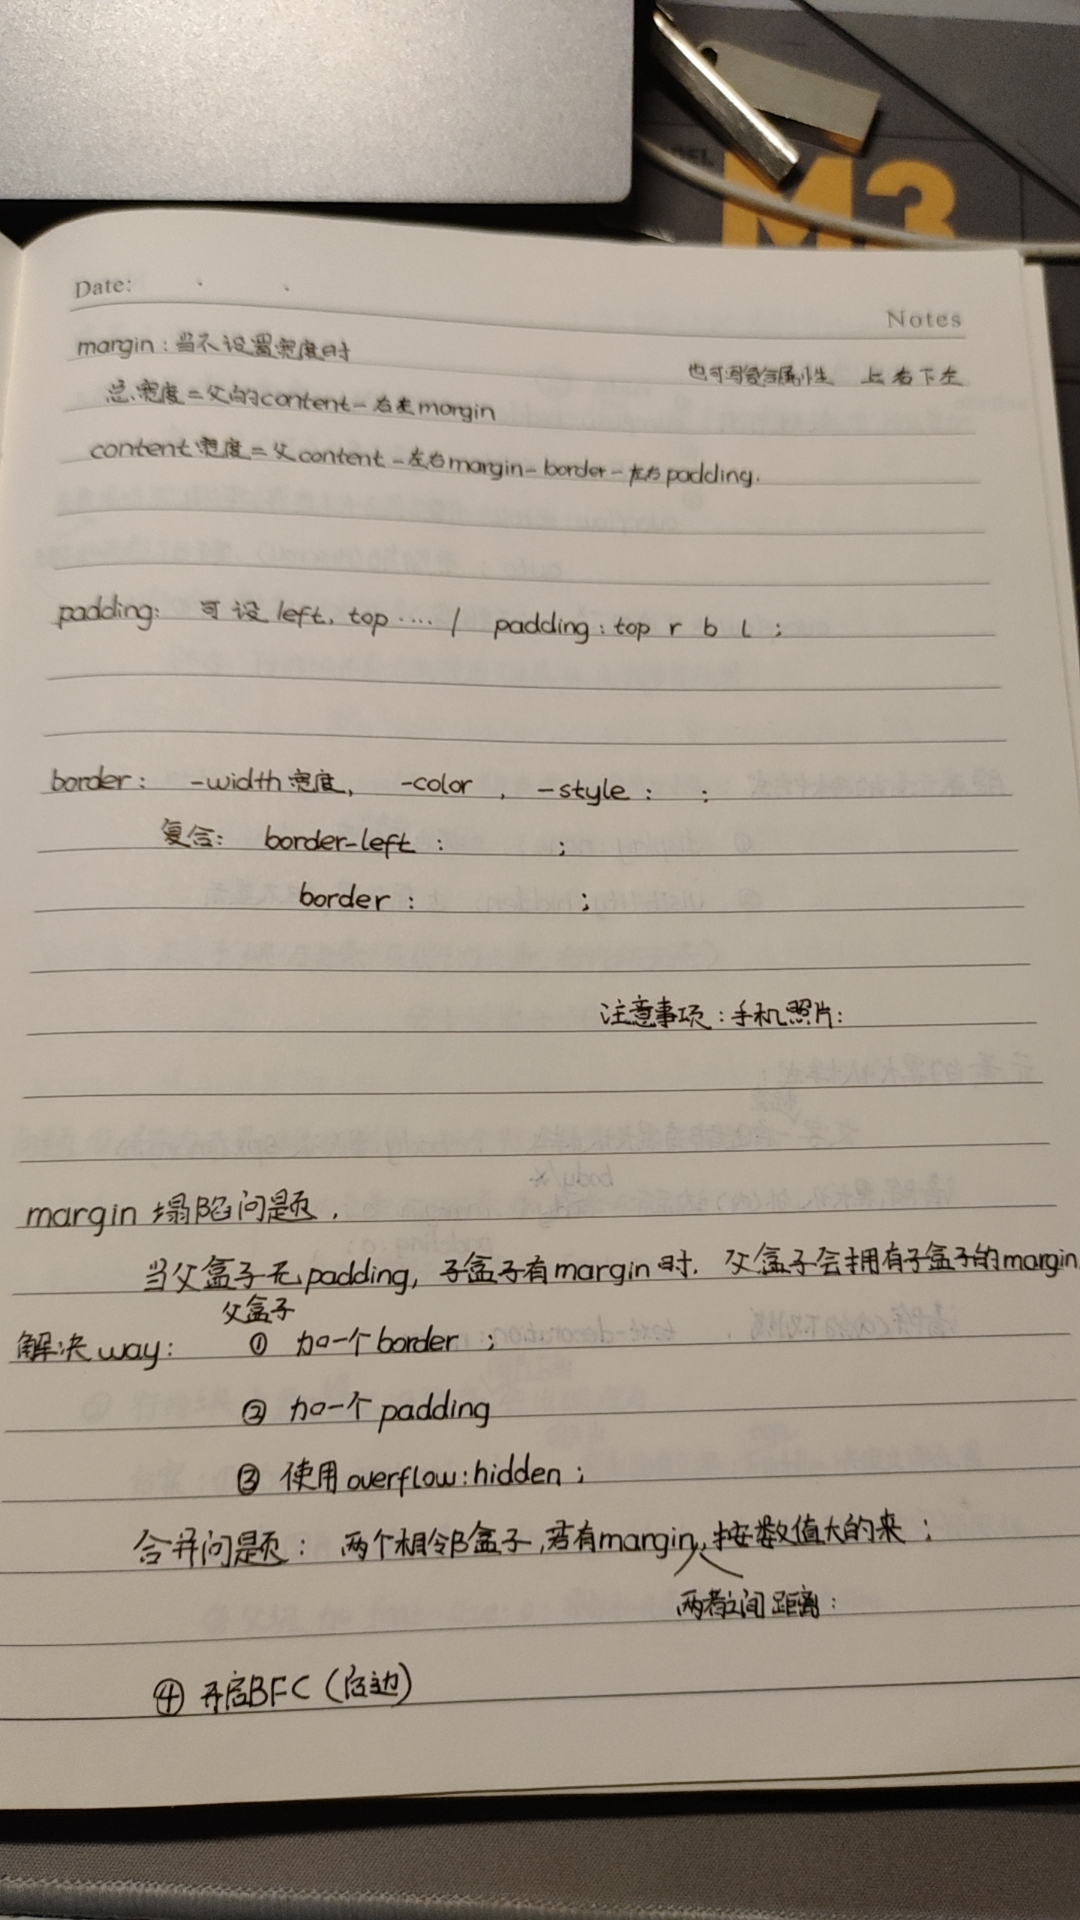 M3
Date:
Notes
margin：当不设置宽度时
也可写复合属性 上右下左
总宽度＝父的content－右左margin
content宽度＝父content－左右margin－border－左右padding.
padding： 可设left, top ···· / padding：top r b l ；
border： -width宽度， -color ， -style： ；
复合： border-left： ；
border： ；
注意事项：手机照片：
margin 塌陷问题．
当父盒子无padding，子盒子有margin时．父盒子会拥有子盒子的margin
父盒子
解决way： ① 加一个border ；
② 加一个padding
③ 使用overflow:hidden；
合并问题： 两个相邻盒子，若有margin，按数值大的来；
两者之间距离：
④ 开启BFC（后边）